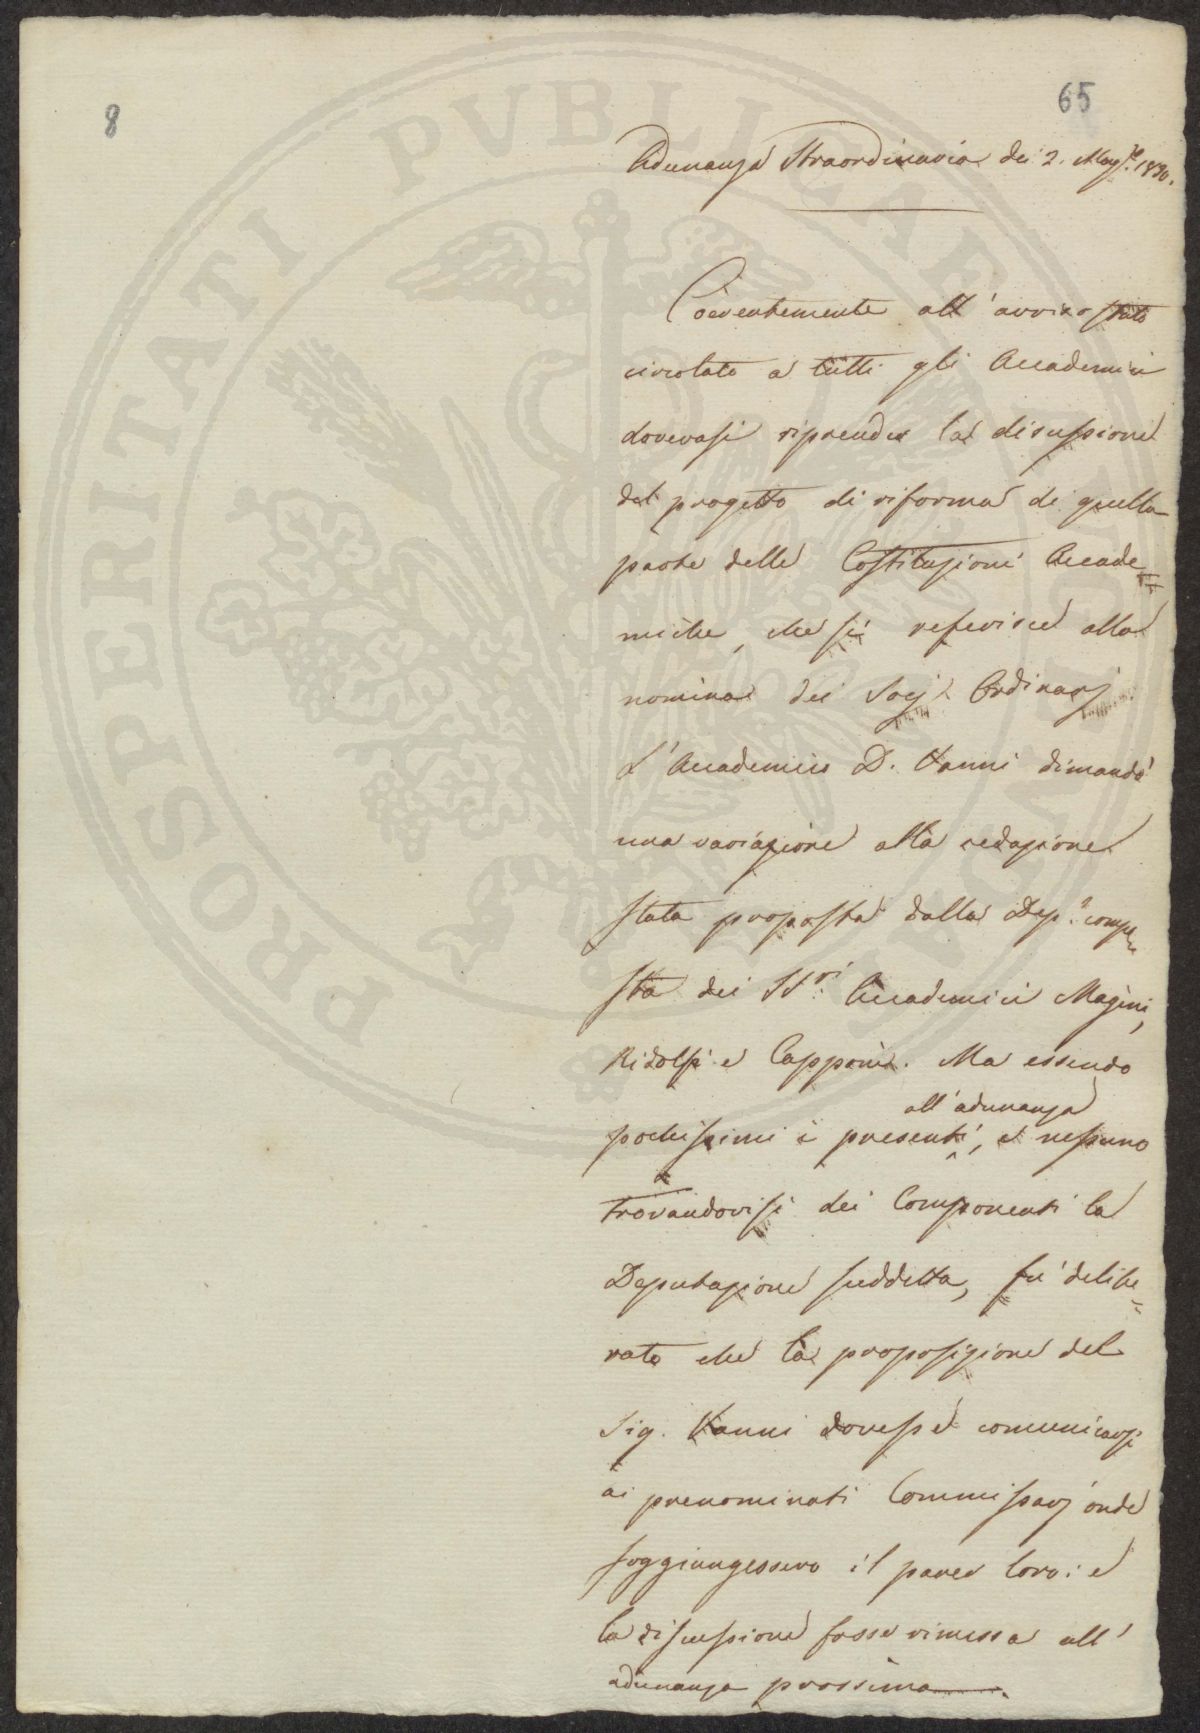 8
65
Adunanza Straordinaria de' 2. Magg.º 1830.
Coerentemente all'avviso stato
circolato a tutti gli Accademici
dovevasi riprender la discussione
del progetto di riforma di quella
parte delle Costituzioni Accade=
miche, che si referisce alla
nomina dei Socj Ordinarj
L'Accademico D. Vanni dimandò
una variazione alla redazione
stata proposta dalla Dep.e compo=
sta dei SS.ri Accademici Magini,
Ridolfi e Capponi. Ma essendo
all'adunanza
pochissimi i presenti, e nessuno
trovandovisi dei Componenti la
Deputazione suddetta, fu delibe=
rato che la proposizione del
Sig. Vanni dovesse comunicarsi
ai prenominati Commissarj onde
soggiungessero il parer loro: e
la discussione fosse rimessa all'
adunanza prossima
PROSPERITATI PVBLICAE